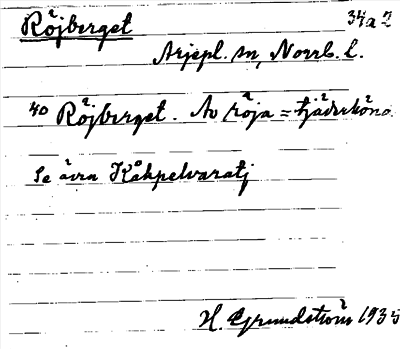 Röjberget 34a2
Arjepl. sn, Norrb. l.
40 Röjberget. Av röja = tjäderhöna.
Se även Kåkpelvaratj
H. Grundström 1935